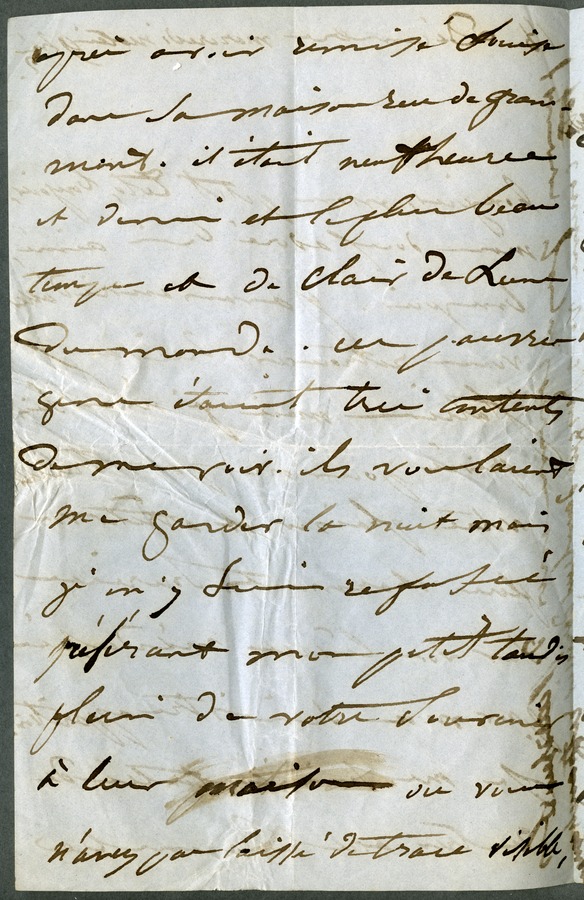 après avoir remisé Louise
dans sa maison rue de gram-
mont. il était neuf heures
et demi et le plus beau
temps et de clair de Lune
du monde. ces pauvres
gens étaient très contents
de me voir. ils voulaient
me garder la nuit mais
j'm'y suis refusé
préférant mon petit taudis
plein de votre souvenir
à leur maison ou vous
n'avez pas laissé de trace visible,